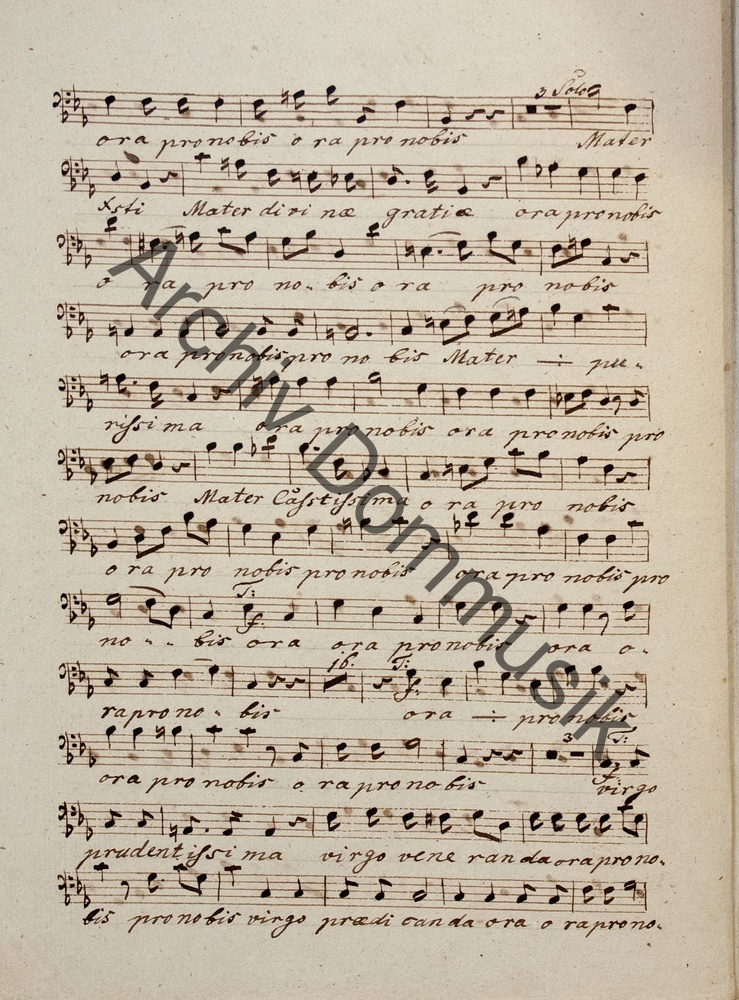 3 Solo
ora pro nobis o ra pro nobis Mater
Xsti Mater divi næ gratiæ ora pro nobis
o ra pro no- bis o ra pro nobis
ora pro nobis pro no bis Mater ÷ pu-
rissima ora pro nobis ora pro nobis pro
nobis Mater Casstissima o ra pro nobis
ora pro nobis pro nobis ora pro nobis pro
T:
f:
no- - bis ora ora pro nobis ora o-
16. T:
f:
ra pro no- bis ora ÷ pro nobis
3 T:
f:
ora pro nobis o ra pro no bis virgo
prudentissi ma virgo vene randa ora pro no-
bis pro nobis virgo prædi canda ora o ra pro no-
Archiv Dommusik